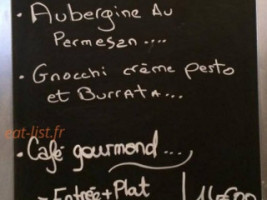 · Aubergine Au
Permesan....
· Gnocchi crème pesto
et Burrata...
eat-list.fr
· Café gourmond...,
- Entrée + Plat